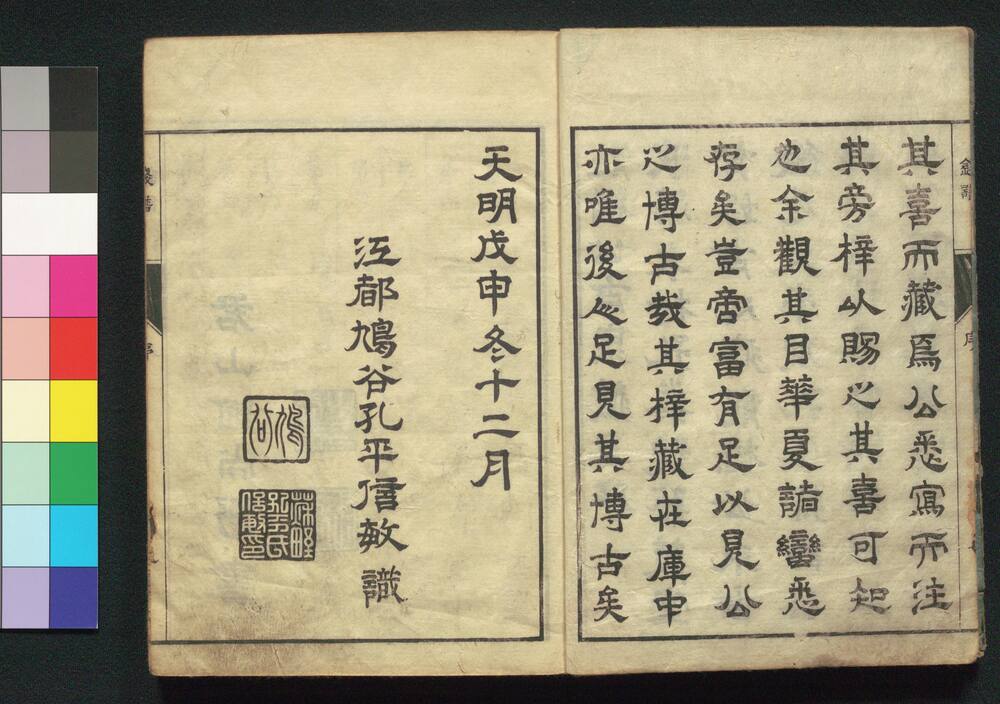 其喜而藏焉公悉寫而注
其旁梓以賜之其喜可知
也余觀其目華夏諸蠻悉
存矣豈啻富有足以見公
之博古哉其梓藏在庫中
亦唯後人足見其博古矣
天明戊申冬十二月
江都鳩谷孔平信敏識
鳩谷